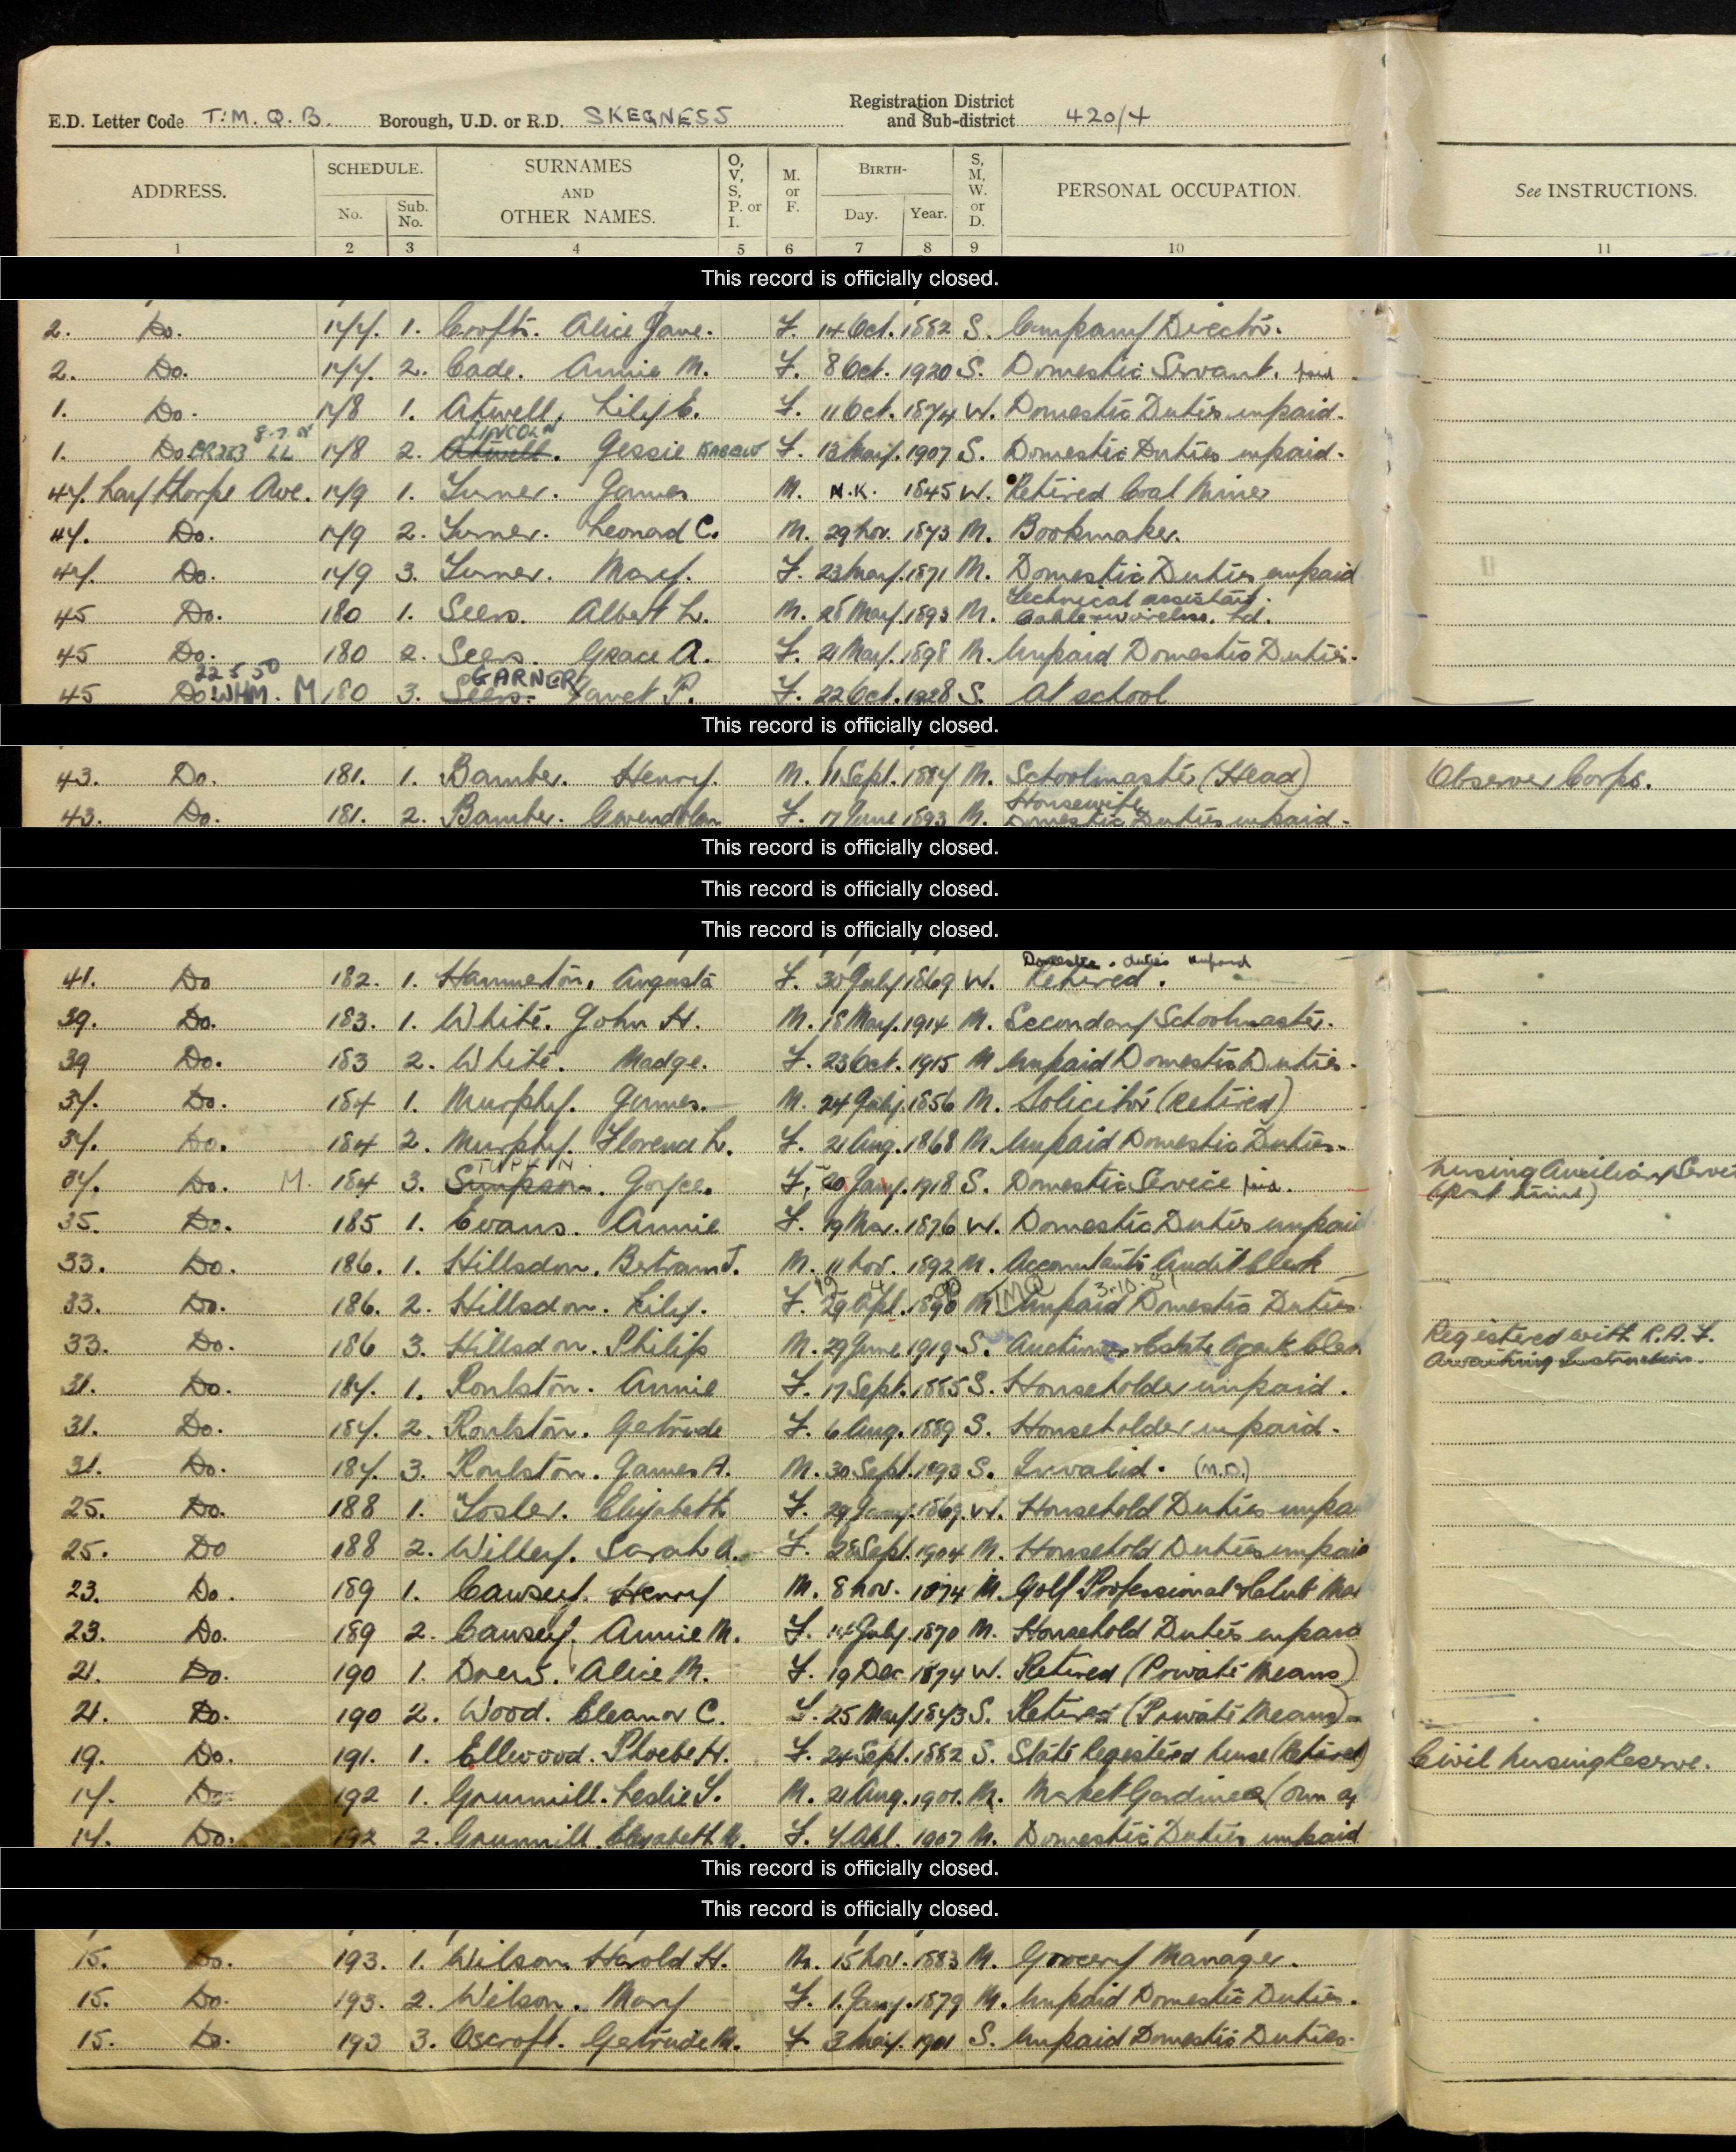 Registration District
E.D. Letter Code T.M.Q.B. Borough, U.D. or R.D. SKEGNESS and Sub-district 420/4
ADDRESS. SCHEDULE. No. Sub. No. SURNAMES AND OTHER NAMES. O, V, S, P. or I. M. or F. BIRTH- Day. Year. S, M, W. or D. PERSONAL OCCUPATION. See INSTRUCTIONS.
1 2 3 4 5 6 7 8 9 10 11
This record is officially closed.
2. Do. 177. 1. Crofts. Alice Jane. F. 14 Oct. 1882 S. Company Director.
2. Do. 177. 2. Cade. Annie M. F. 8 Oct. 1920 S. Domestic Servant. paid
1. Do. 178 1. Atwell, Lily E. F. 11 Oct. 1874 W. Domestic Duties unpaid.
8.7 LINCOLN
1. Do CR283 LL 178 2. Atwell. Jessie F. 13 May. 1907 S. Domestic Duties unpaid.
47. Laythorpe Ave. 179 1. Turner. James M. N.K. 1845 W. Retired Coal Miner
47. Do. 179 2. Turner. Leonard C. M. 29 Nov. 1873 M. Bookmaker.
47. Do. 179 3. Turner. Mary. F. 23 May. 1871 M. Domestic Duties unpaid
Technical assistant.
45 Do. 180 1. Seers. Albert L. M. 28 May. 1893 M. Cable & wireless. Ltd.
45 Do. 180 2. Seers. Grace A. F. 21 May. 1898 M. Unpaid Domestic Duties.
22 5 50 GARNER
45 Do. WHM. M 180 3. Seers. Janet P. F. 22 Oct. 1928 S. At school
This record is officially closed.
43. Do. 181. 1. Bamber. Henry. M. 11 Sept. 1887 M. Schoolmaster (Head) Observer Corps.
Housewife
43. Do. 181. 2. Bamber. Gwendolen F. 17 June 1893 M. Domestic Duties unpaid.
This record is officially closed.
This record is officially closed.
This record is officially closed.
Domestic duties unpaid
41. Do 182. 1. Hammerton, Augusta F. 30 July 1869 W. Retired.
39. Do. 183. 1. White. John H. M. 18 May. 1914 M. Secondary Schoolmaster.
39 Do. 183 2. White. Madge. F. 23 Oct. 1915 M Unpaid Domestic Duties.
37. Do. 184 1. Murphy. James. M. 24 July. 1856 M. Solicitor (retired)
37. Do. 184 2. Murphy. Florence L. F. 21 Aug. 1868 M. Unpaid Domestic Duties.
TUPLIN Nursing Auxiliary Service
37. Do. M. 184 3. Simpson. Joyce. F. 20 Jany. 1918 S. Domestic Service paid. (part time)
35. Do. 185 1. Evans. Annie F. 19 Mar. 1876 W. Domestic Duties unpaid
33. Do. 186. 1. Hillsdon. Bertram J. M. 11 Nov. 1892 M. Accountants Audit Clerk
19 4 90 TMQ 3.10.51
33. Do. 186. 2. Hillsdon. Lily. F. 29 Apl. 1890 M. Unpaid Domestic Duties.
Registered with R.A.F.
33. Do. 186 3. Hillsdon. Philip M. 29 June 1919 S. Auctioneer & Estate Agent Clerk Awaiting Instruction.
31. Do. 187. 1. Roulston. Annie F. 17 Sept. 1885 S. Householder unpaid.
31. Do. 187. 2. Roulston. Gertrude F. 6 Aug. 1889 S. Householder unpaid.
31. Do. 187. 3. Roulston. James A. M. 30 Sept. 1893 S. Invalid. (M.D.)
25. Do. 188 1. Tosler. Elizabeth F. 29 Jany. 1869. W. Household Duties unpa
25. Do 188 2. Willey. Sarah A. F. 28 Sept. 1904 M. Household Duties unpaid
23. Do. 189 1. Causey. Henry M. 8 Nov. 1874 M. Golf Professional & Club Ma
23. Do. 189 2. Causey. Annie M. F. 14 July. 1870 M. Household Duties unpaid
21. Do. 190 1. Drews. Alice M. F. 19 Dec 1874 W. Retired (Private Means)
21. Do. 190 2. Wood. Eleanor C. F. 25 May. 1873 S. Retired (Private Means)
19. Do. 191. 1. Ellwood. Phoebe H. F. 24 Sept. 1882 S. State Registered Nurse (Retired) Civil Nursing Reserve.
17. Do. 192 1. Grunnill. Leslie T. M. 21 Aug. 1901. M. Market Gardiner (own a
17. Do. 192 2. Grunnill. Elizabeth M. F. 7 Apl. 1907 M. Domestic Duties unpaid
This record is officially closed.
This record is officially closed.
15. Do. 193. 1. Wilson. Harold H. M. 15 Nov. 1883 M. Grocery Manager.
15. Do. 193. 2. Wilson. Mary F. 1. Jany. 1879 M. Unpaid Domestic Duties.
15. Do. 193 3. Oscroft. Gertrude M. F 3 May. 1901 S. Unpaid Domestic Duties.